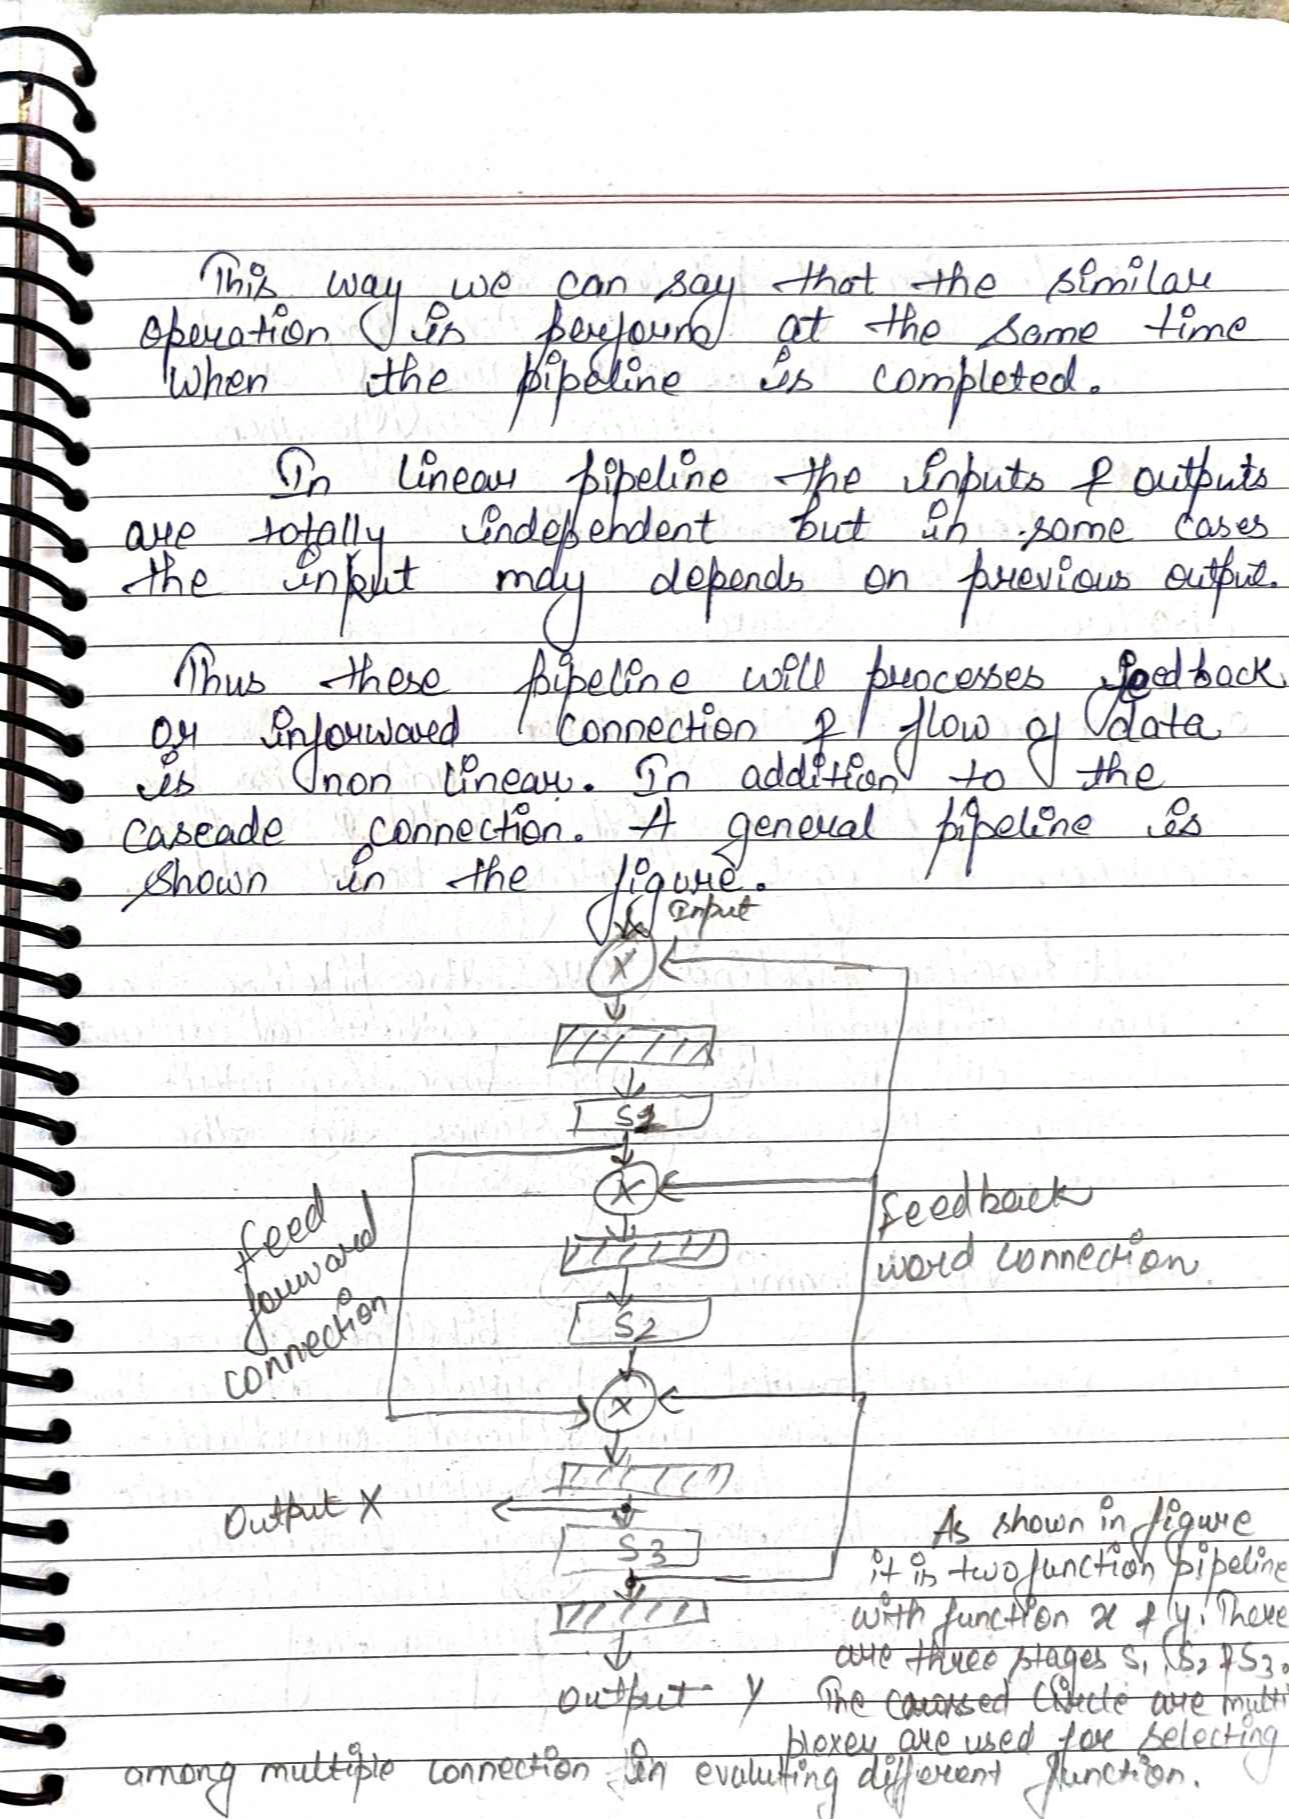 This way we can say that the similar
operation is perform at the same time
when the pipeline is completed.
In linear pipeline the inputs & outputs
are totally independent but in some cases
the input may depends on previous output.
Thus these pipeline will processes feedback
or inforward connection & flow of data
is non linear. In addition to the
cascade connection. A general pipeline is
shown in the figure.
Input
X
S1
X
feed
forward
connection
feedback
word connection
S2
X
Output X
S3
Output Y
As shown in figure
it is two function pipeline
with function x & y. There
are three stages S1, S2 & S3.
The crossed Circle are multi
plexer are used for selecting
among multiple connection in evaluting different function.